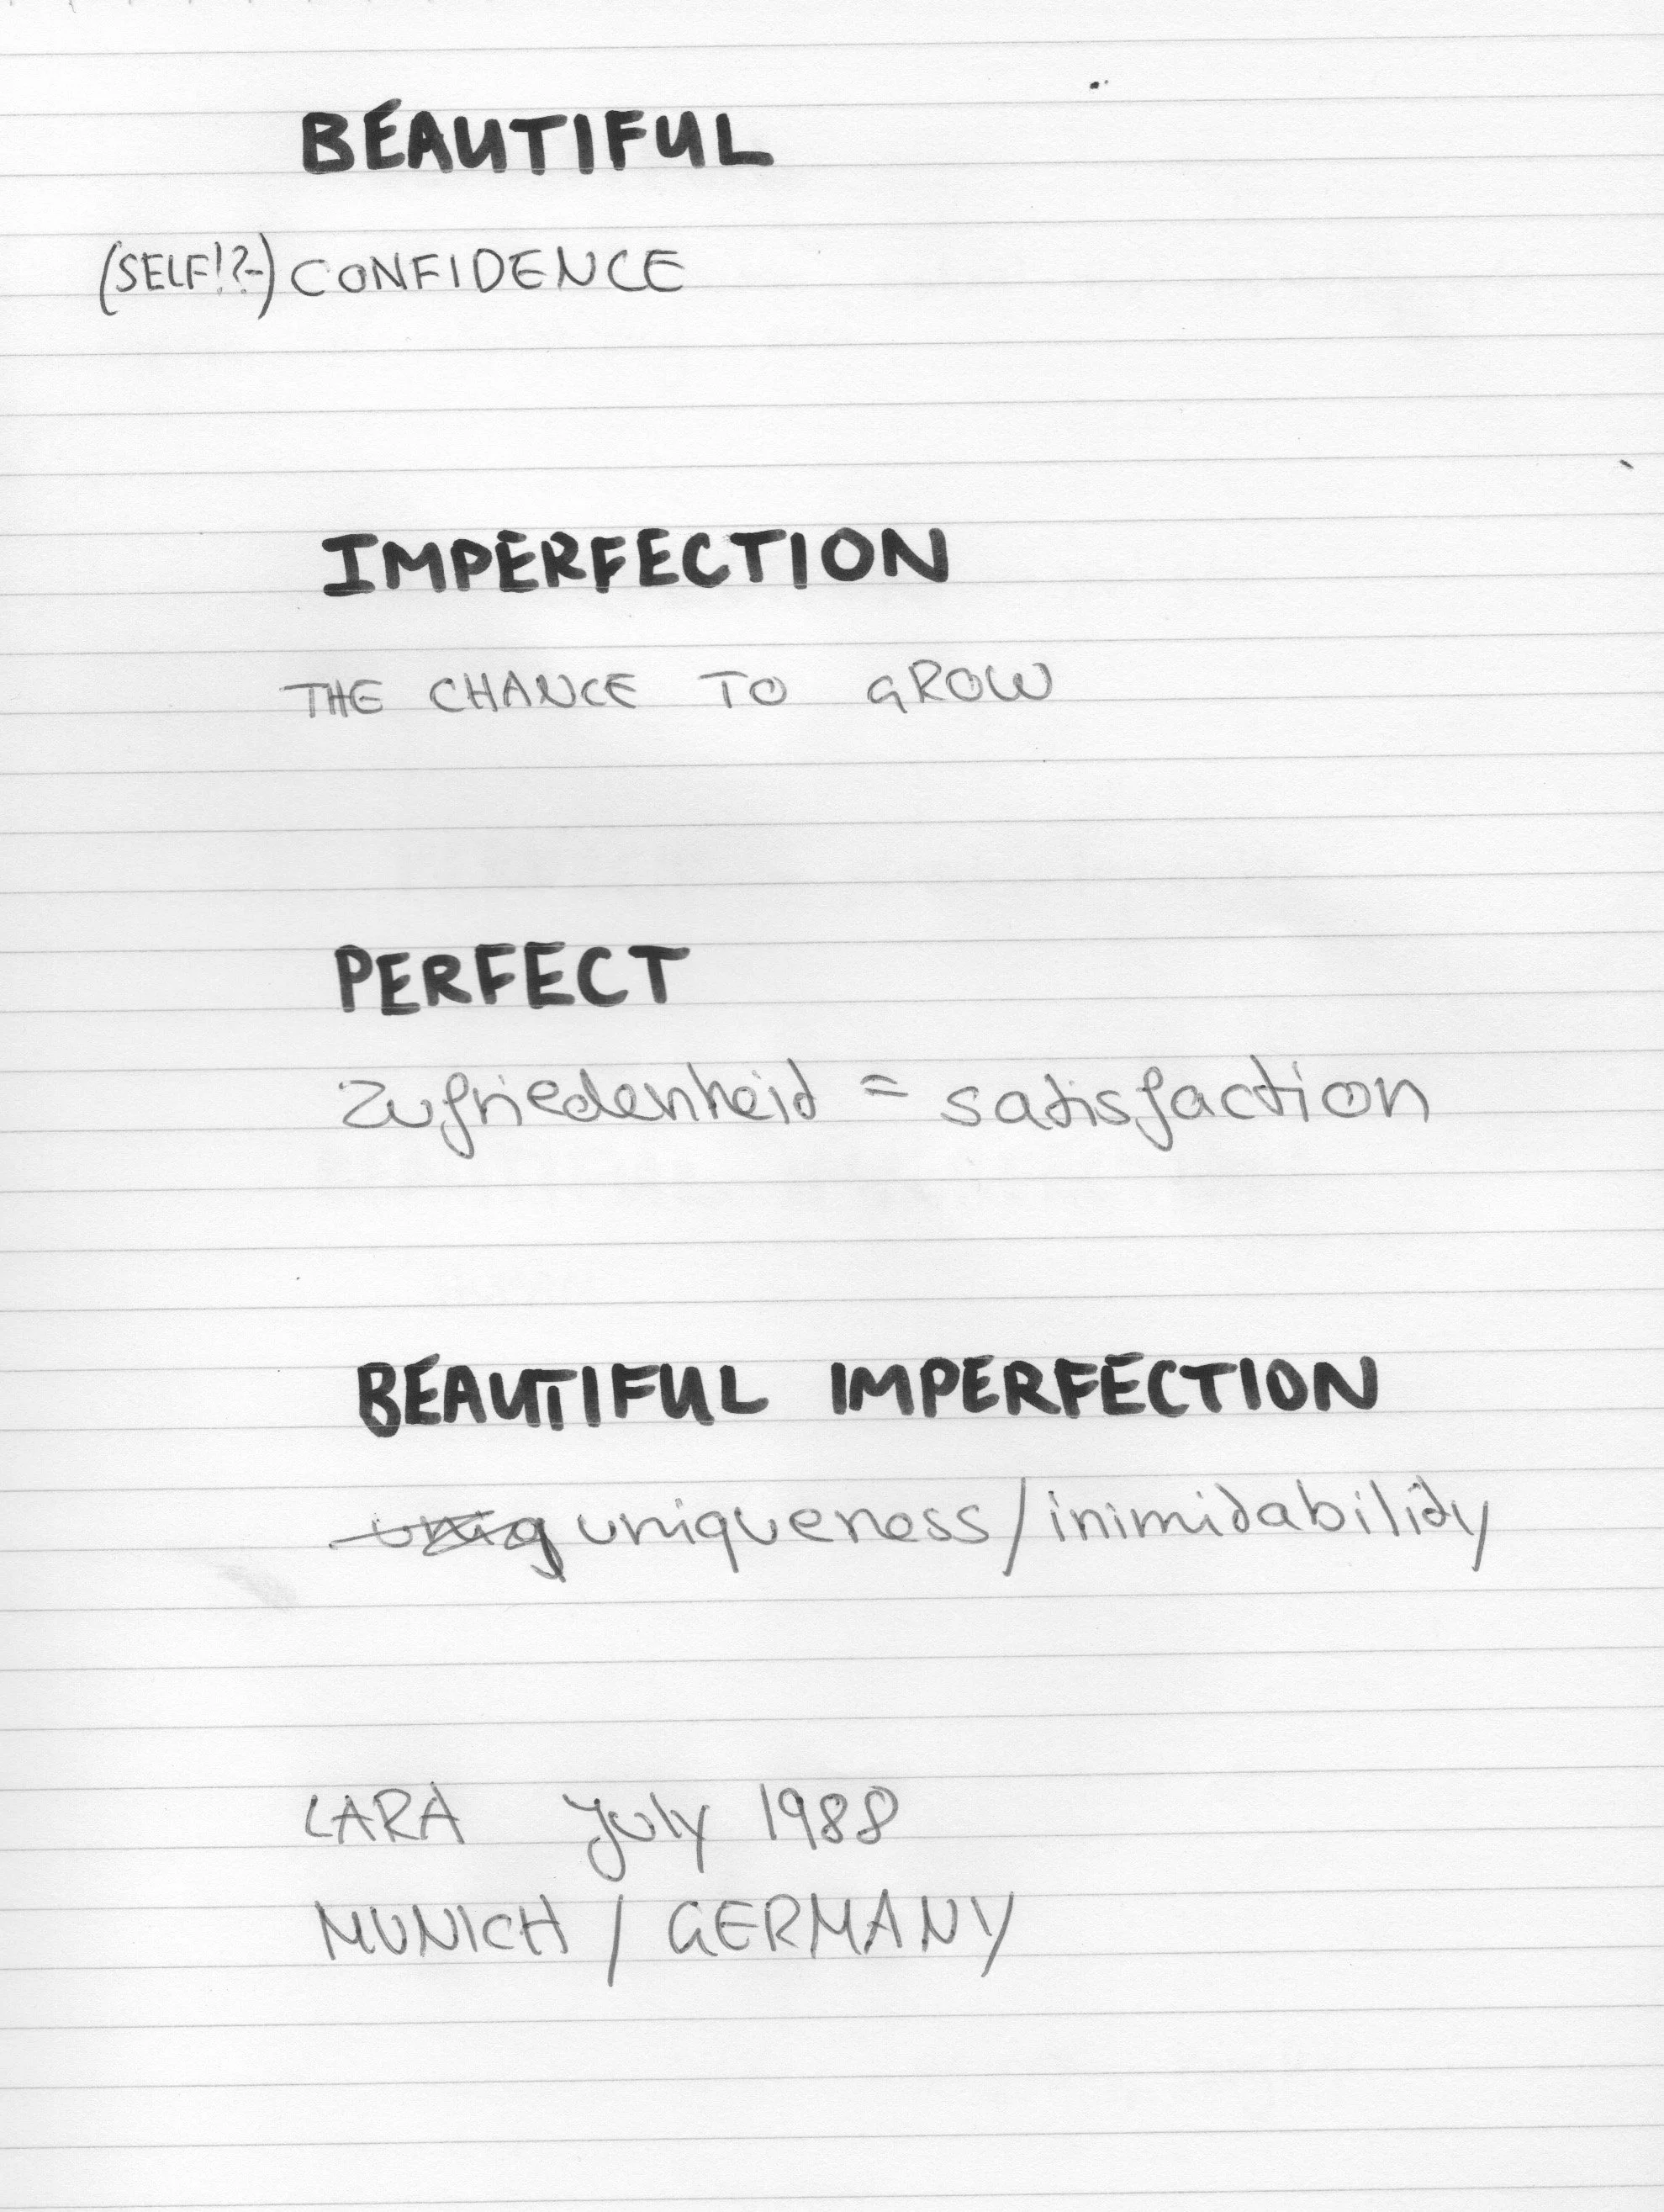 BEAUTIFUL
(SELF!?-) CONFIDENCE
IMPERFECTION
THE CHANCE TO GROW
PERFECT
Zufriedenheit = satisfaction
BEAUTIFUL IMPERFECTION
uniqueness/inimitability
LARA July 1988
MUNICH / GERMANY